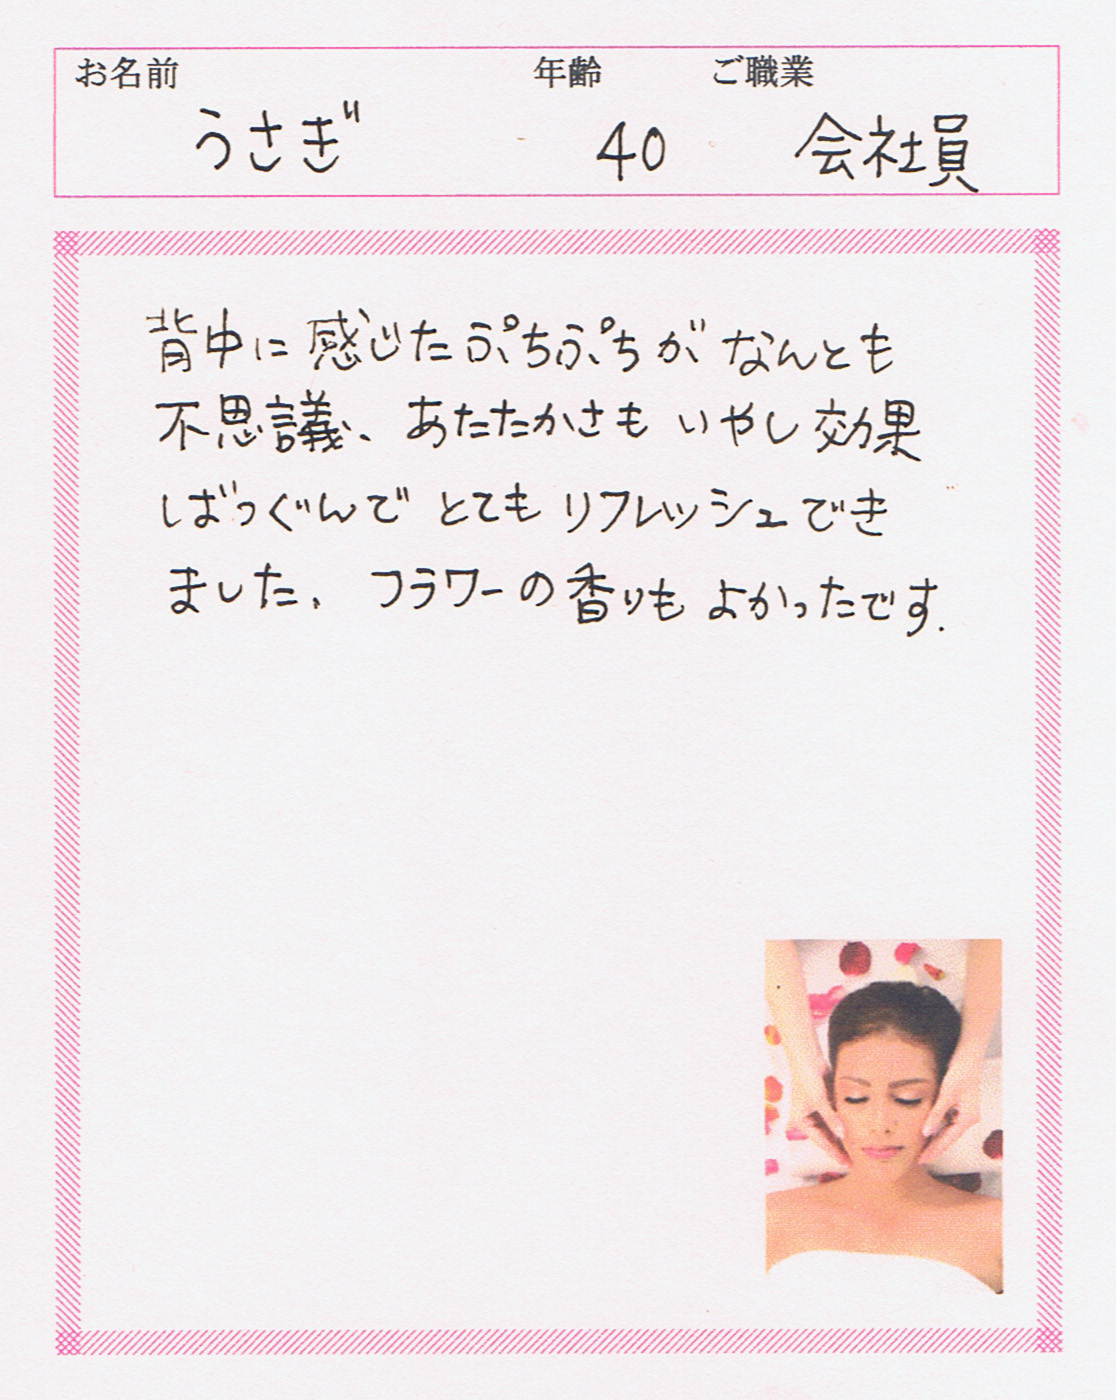 お名前 年齢 ご職業
うさぎ 40 会社員
背中に感じたぷちぷちがなんとも
不思議、あたたかさもいやし効果
ばつぐんでとてもリフレッシュでき
ました。フラワーの香りもよかったです.